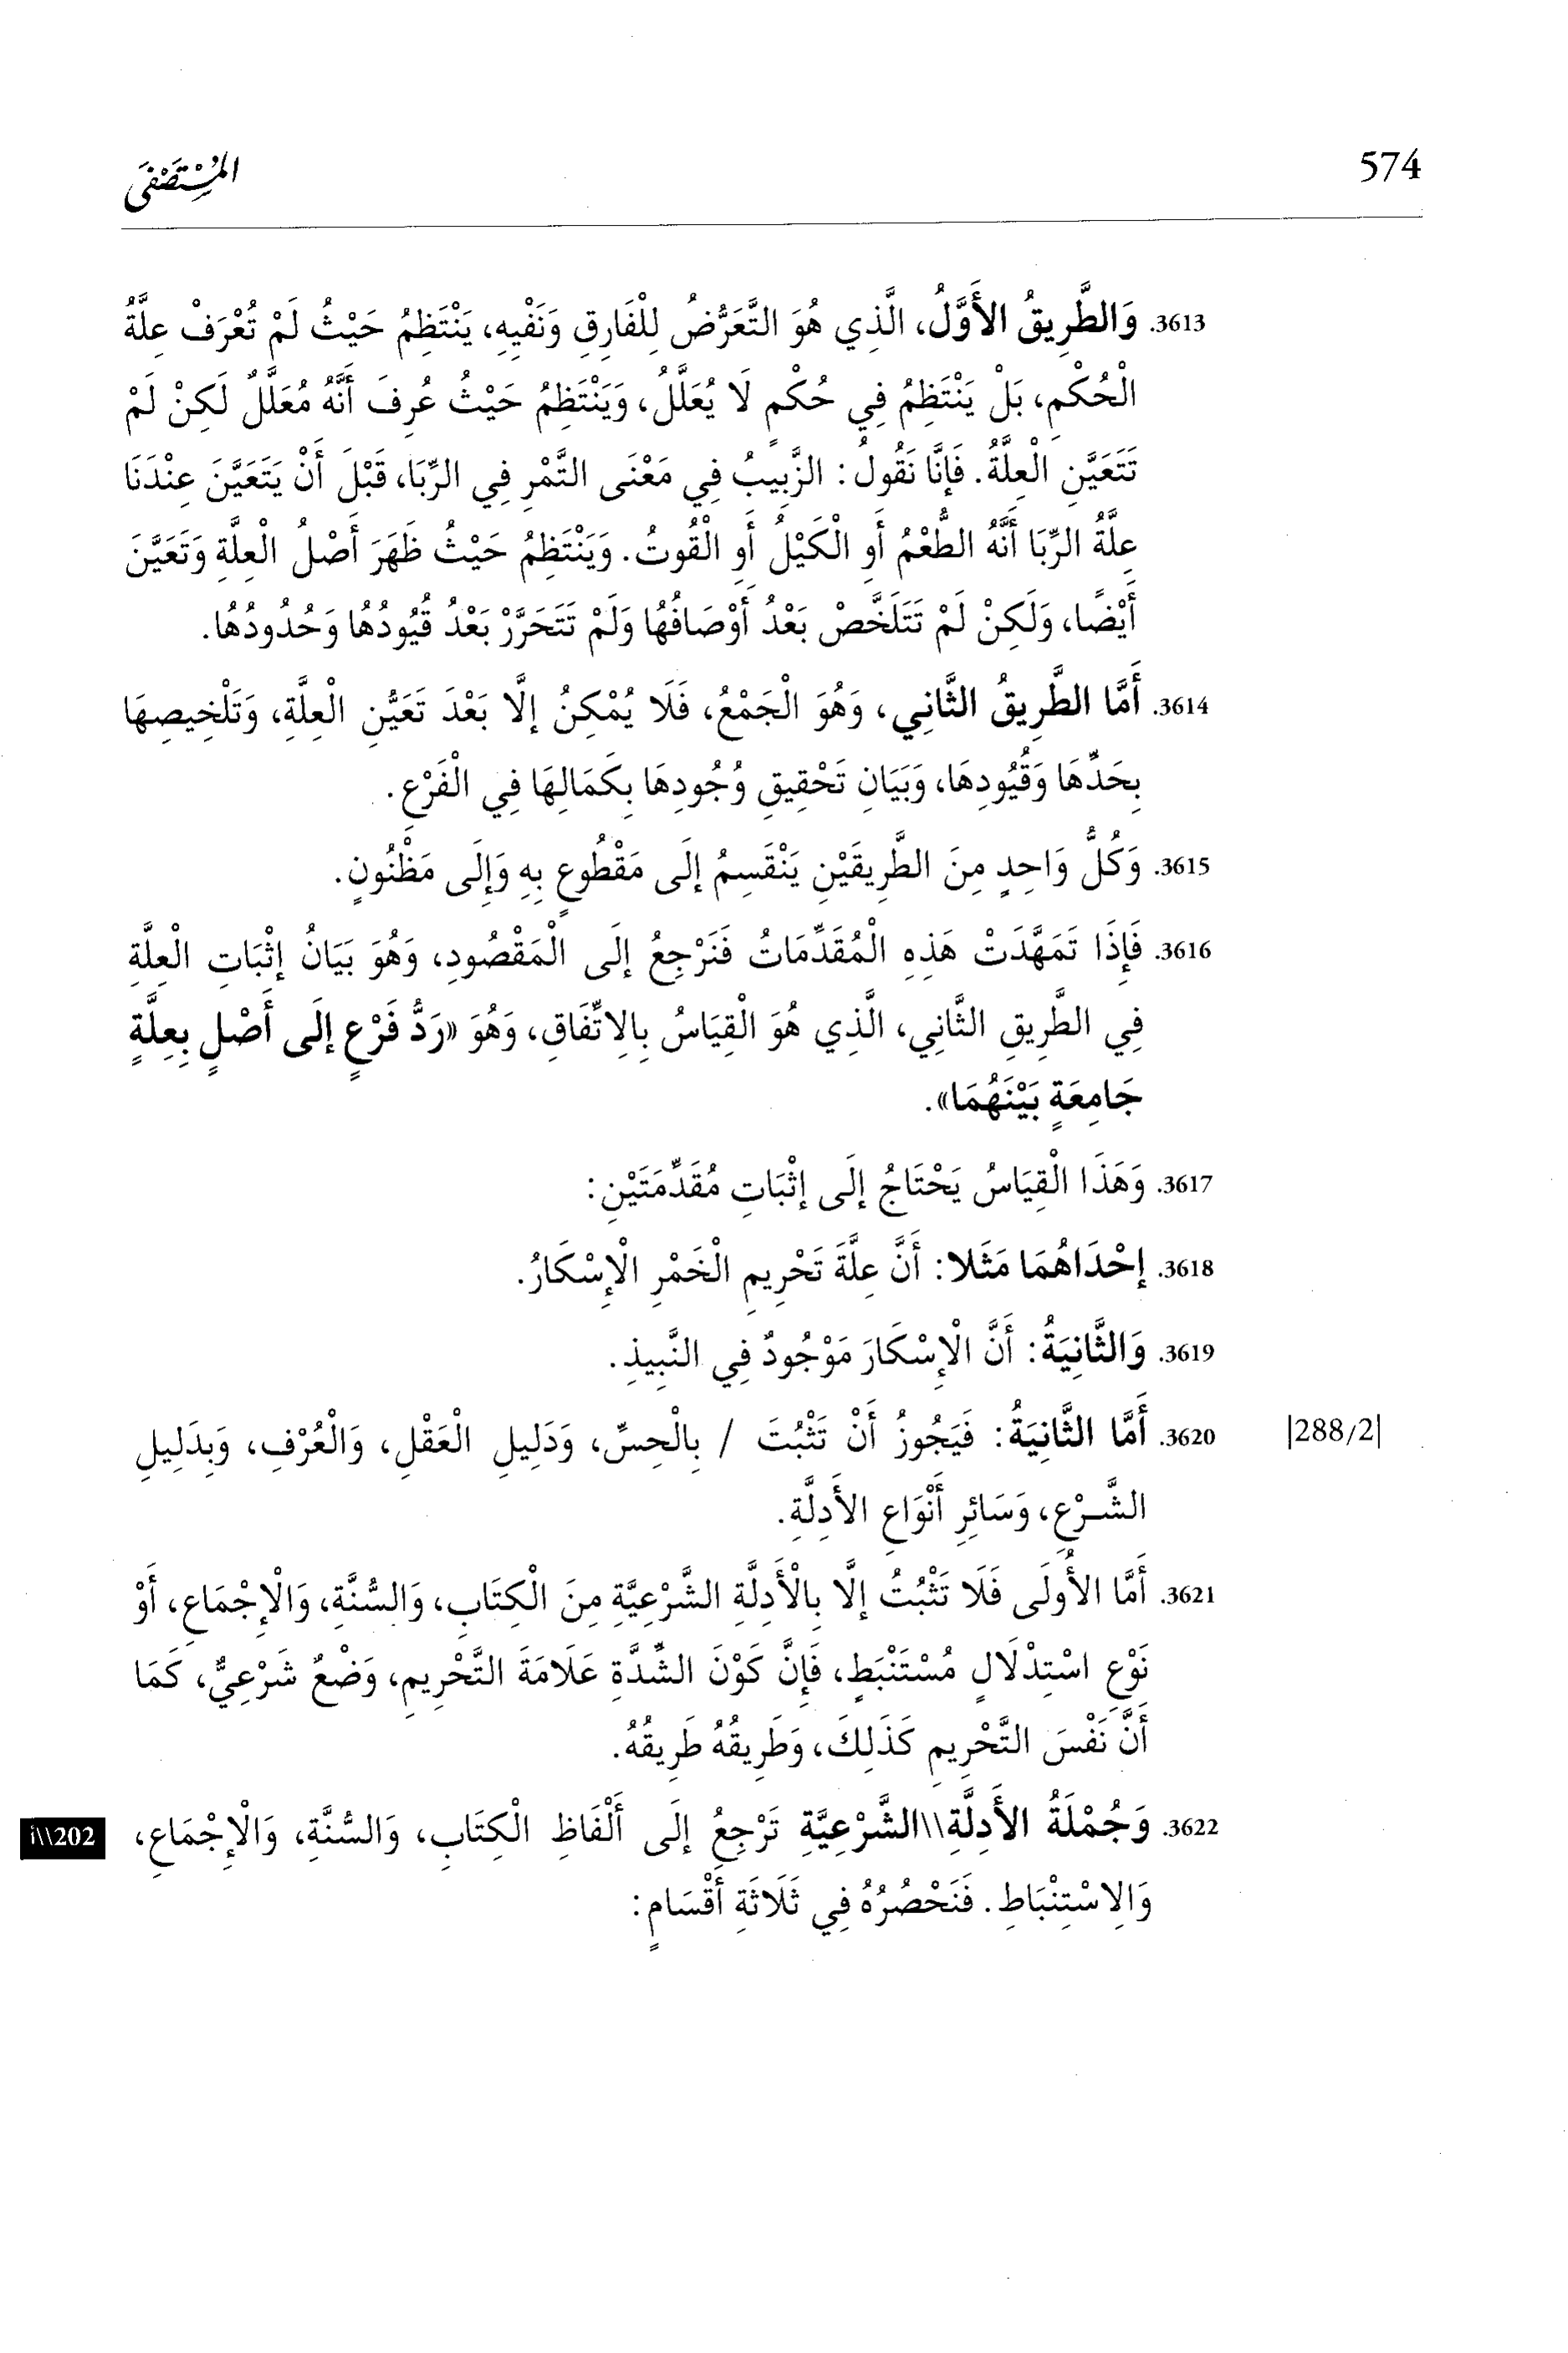 574
المُسْتَصْفَى
3613. وَالطَّرِيقُ الأَوَّلُ، الَّذِي هُوَ التَّعَرُّضُ لِلْفَارِقِ وَنَفْيِهِ، يَنْتَظِمُ حَيْثُ لَمْ تُعْرَفْ عِلَّةُ
الْحُكْمِ، بَلْ يَنْتَظِمُ فِي حُكْمٍ لَا يُعَلَّلُ، وَيَنْتَظِمُ حَيْثُ عُرِفَ أَنَّهُ مُعَلَّلٌ لَكِنْ لَمْ
تَتَعَيَّنِ الْعِلَّةُ. فَإِنَّا نَقُولُ: الزَّبِيبُ فِي مَعْنَى التَّمْرِ فِي الرِّبَا، قَبْلَ أَنْ يَتَعَيَّنَ عِنْدَنَا
عِلَّةُ الرِّبَا أَنَّهُ الطُّعْمُ أَوِ الْكَيْلُ أَوِ الْقُوتُ. وَيَنْتَظِمُ حَيْثُ ظَهَرَ أَصْلُ الْعِلَّةِ وَتَعَيَّنَ
أَيْضًا، وَلَكِنْ لَمْ تَتَلَخَّصْ بَعْدُ أَوْصَافُهَا وَلَمْ تَتَحَرَّرْ بَعْدُ قُيُودُهَا وَحُدُودُهَا.
3614. أَمَّا الطَّرِيقُ الثَّانِي، وَهُوَ الْجَمْعُ، فَلَا يُمْكِنُ إِلَّا بَعْدَ تَعَيُّنِ الْعِلَّةِ، وَتَلْخِيصِهَا
بِحَدِّهَا وَقُيُودِهَا، وَبَيَانِ تَحْقِيقِ وُجُودِهَا بِكَمَالِهَا فِي الْفَرْعِ.
3615. وَكُلُّ وَاحِدٍ مِنَ الطَّرِيقَيْنِ يَنْقَسِمُ إِلَى مَقْطُوعٍ بِهِ وَإِلَى مَظْنُونٍ.
3616. فَإِذَا تَمَهَّدَتْ هَذِهِ الْمُقَدِّمَاتُ فَنَرْجِعُ إِلَى الْمَقْصُودِ، وَهُوَ بَيَانُ إِثْبَاتِ الْعِلَّةِ
فِي الطَّرِيقِ الثَّانِي، الَّذِي هُوَ الْقِيَاسُ بِالِاتِّفَاقِ، وَهُوَ «رَدُّ فَرْعٍ إِلَى أَصْلٍ بِعِلَّةٍ
جَامِعَةٍ بَيْنَهُمَا».
3617. وَهَذَا الْقِيَاسُ يَحْتَاجُ إِلَى إِثْبَاتِ مُقَدِّمَتَيْنِ:
3618. إِحْدَاهُمَا مَثَلا: أَنَّ عِلَّةَ تَحْرِيمِ الْخَمْرِ الْإِسْكَارُ.
3619. وَالثَّانِيَةُ: أَنَّ الْإِسْكَارَ مَوْجُودٌ فِي النَّبِيذِ.
|288/2| 3620. أَمَّا الثَّانِيَةُ: فَيَجُوزُ أَنْ تَثْبُتَ / بِالْحِسِّ، وَدَلِيلِ الْعَقْلِ، وَالْعُرْفِ، وَبِدَلِيلِ
الشَّرْعِ، وَسَائِرِ أَنْوَاعِ الأَدِلَّةِ.
3621. أَمَّا الأُولَى فَلَا تَثْبُتُ إِلَّا بِالْأَدِلَّةِ الشَّرْعِيَّةِ مِنَ الْكِتَابِ، وَالسُّنَّةِ، وَالْإِجْمَاعِ، أَوْ
نَوْعِ اسْتِدْلَالٍ مُسْتَنْبَطٍ، فَإِنَّ كَوْنَ الشِّدَّةِ عَلَامَةَ التَّحْرِيمِ، وَضْعٌ شَرْعِيٌّ، كَمَا
أَنَّ نَفْسَ التَّحْرِيمِ كَذَلِكَ، وَطَرِيقُهُ طَرِيقُهُ.
3622. وَجُمْلَةُ الأَدِلَّةِ\\الشَّرْعِيَّةِ تَرْجِعُ إِلَى أَلْفَاظِ الْكِتَابِ، وَالسُّنَّةِ، وَالْإِجْمَاعِ، 202\\أ
وَالِاسْتِنْبَاطِ. فَنَحْصُرُهُ فِي ثَلَاثَةِ أَقْسَامٍ: